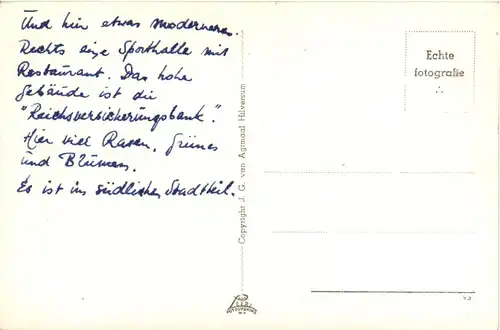 Und hier etwas moderneres.
Rechts eine Sporthalle mit
Restaurant. Das hohe
Gebäude ist die
"Reichsversicherungsbank".
Hier viel Rasen, Grünes
und Blumen.
Es ist im südlichen Stadtteil.
Copyright J. G. van Agtmaal Hilversum
Echte
fotografie